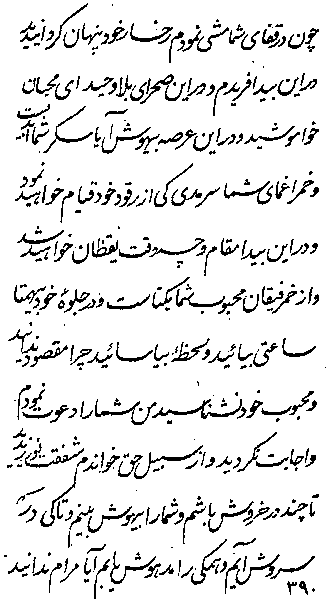 چون در قفای شما مشی نمودم رخسار خود پنهان کردانیدید
در این بیدا فریدم و در این صحرای بلا وحید ای محبان
خواموشید و در این عرصه بیهوش آیا سکر شما ابدیست
و خمر اغمای شما سرمدی کی از رقود خود قیام خواهید نمود
و در این بیدا مقام و چه وقت یقظان خواهید شد
و از خمر فیقان محبوب شما یکتاست و در جلوهٔ خود بیهمتا
ساعتی بیائید و لحظهٔ بیاسائید چرا مقصود ندانید
و محبوب خود نشناسید من شما را دعوت نمودم
و اجابت نکردید و از سبیل حق خواندم شفقت نورزیدید
تا چند در خروش باشم و شما را بیهوش بینم و تا کی در
سروش آیم و همکی را مدهوش یابم آیا مرام ندانید
۳۹۰